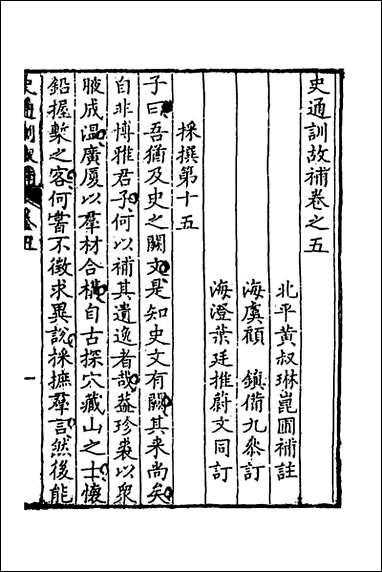 史通訓故補卷之五
北平黃叔琳崑圃補註
海虞顧　鎮備九叅訂
海澄葉廷推蔚文同訂
採撰第十五
子曰吾猶及史之闕文是知史文有闕其来尚矣
自非博雅君子何以補其遺逸者哉葢珍裘以衆
腋成温廣厦以羣材合構自古探穴藏山之士懷
鉛握槧之客何嘗不徵求異說採摭羣言然後能
史通訓故補　卷五　一